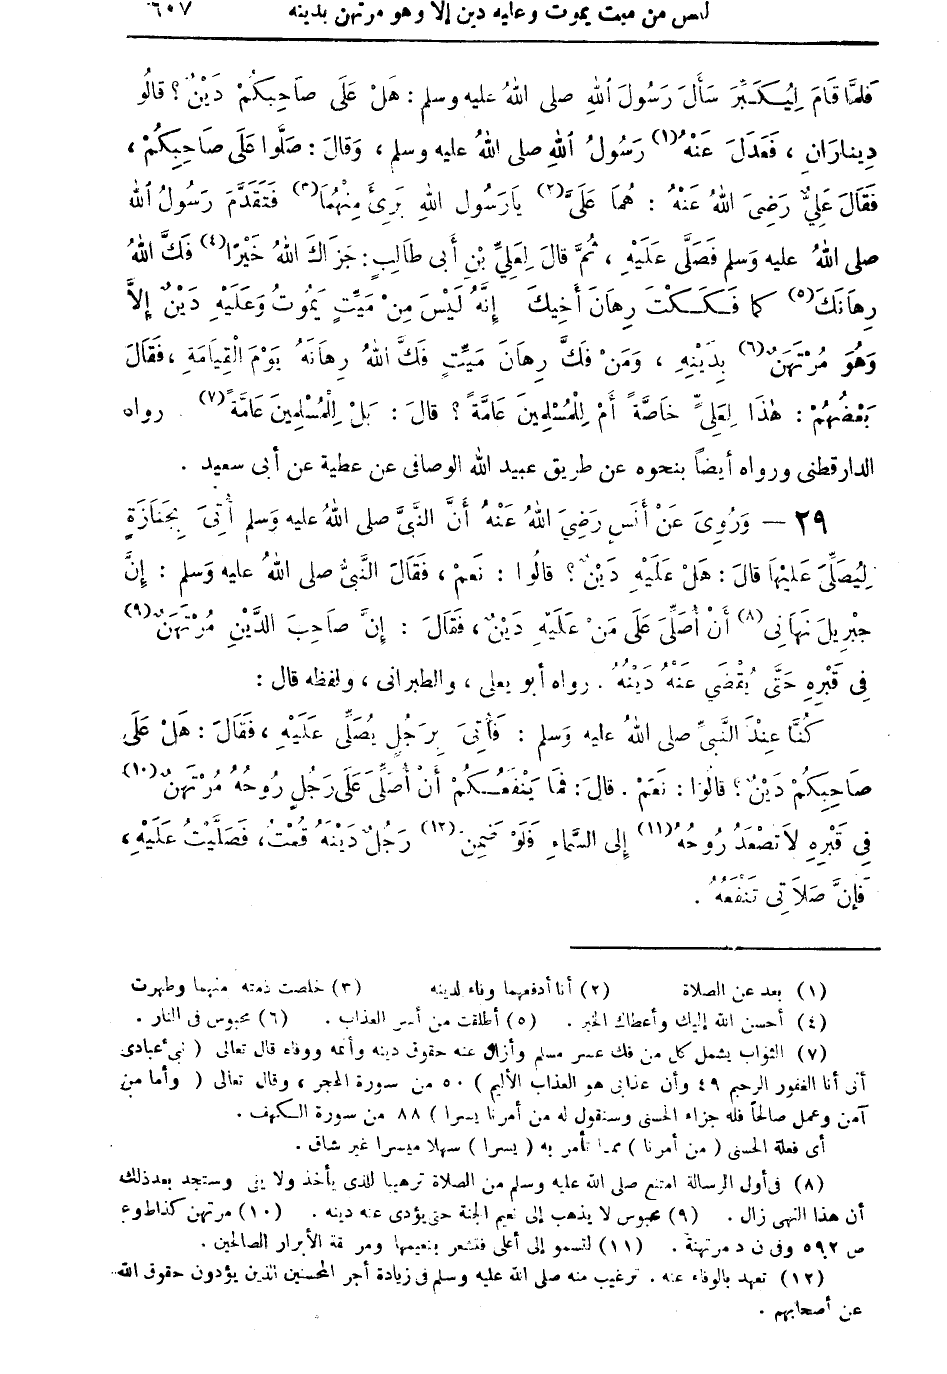 ليس من ميت يموت وعليه دين إلا وهو مرتهن بدينه ٦٠٧
فَلمَّا قَامَ لِيُكَبِّرَ سَأَلَ رَسُولَ اللهِ صلى اللهُ عليه وسلم : هَلْ عَلَى صَاحِبِكُمْ دَيْنٌ ؟ قالُو
دِينارَانِ ، فَعَدَلَ عَنْهُ (١) رَسُولُ اللهِ صلى اللهُ عليه وسلم ، وَقَالَ : صَلُّوا عَلَى صَاحِبِكُمْ ،
فَقَالَ عَلِيٌّ رَضِىَ اللهُ عَنْهُ : هُمَا عَلَىَّ (٢) يَارَسُول اللهِ بَرِئَ مِنْهُمَا (٣) فَتَقَدَّمَ رَسُولُ اللهُ
صلى اللهُ عليه وَسلم فَصَلَّى عَلَيْهِ ، ثُمَّ قالَ لِعَلِيِّ بْنِ أَبى طَالِبٍ : جَزَاكَ اللهُ خَيْرًا (٤) فَكَّ اللهُ
رِهَانَكَ (٥) كما فَكَكْتَ رِهَانَ أَخِيكَ إِنَّهُ لَيْسَ مِنْ مَيِّتٍ يَمُوتُ وَعَلَيْهِ دَيْنٌ إِلاَّ
وَهُوَ مُرْتَهَنٌ (٦) بِدَيْنِهِ ، وَمَنْ فَكَّ رِهَانَ مَيِّتٍ فَكَّ اللهُ رِهَانَهُ يَوْمَ الْقِيَامَةِ ، فَقَالَ
بَعْضُهُمْ : هٰذَا لِعَلِيٍّ خَاصَّةً أَمْ لِلْمُسْلِمِينَ عَامَّةً ؟ قالَ : بَلْ لِلْمُسْلِمِينَ عَامَّةً (٧) . رواه
الدارقطنى ورواه أيضاً بنحوه عن طريق عبيد الله الوصافى عن عطية عن أبى سعيد .
٢٩ — وَرُوِىَ عَنْ أَنَسٍ رَضِيَ اللهُ عَنْهُ أَنَّ النَّبىَّ صلى اللهُ عليه وَسلم أُتِىَ بِجَنَازَةٍ
لِيُصَلِّىَ عَلَيْهَا قالَ : هَلْ عَلَيْهِ دَيْنٌ ؟ قالُوا : نَعَمْ ، فَقَالَ النَّبىُّ صلى اللهُ عليه وَسلم : إِنَّ
جِبْرِيلَ نَهَانِى (٨) أَنْ أُصَلِّىَ عَلَى مَنْ عَلَيْهِ دَيْنٌ ، فَقَالَ : إِنَّ صَاحِبَ الدَّيْنِ مُرْتَهَنٌ (٩)
فِى قَبْرِهِ حَتَّى يُقْضَى عَنْهُ دَيْنُهُ . رواه أبو يعلى ، والطبرانى ، ولفظه قال :
كُنَّا عِنْدَ النَّبىِّ صلى اللهُ عليه وَسلم : فَأُتِىَ بِرَجُلٍ يُصَلِّى عَلَيْهِ ، فَقَالَ : هَلْ عَلَى
صَاحِبِكُمْ دَيْنٌ ؟ قالُوا : نَعَمْ . قالَ : فَمَا يَنْفَعُكُمْ أَنْ أُصَلِّىَ عَلَى رَجُلٍ رُوحُهُ مُرْتَهَنٌ (١٠)
فِى قَبْرِهِ لاَ تَصْعَدُ رُوحُهُ (١١) إِلى السَّمَاءِ فَلَوْ ضَمِنَ (١٢) رَجُلٌ دَيْنَهُ قُمْتُ، فَصَلَّيْتُ عَلَيْهِ ،
فَإِنَّ صَلاَتِى تَنْفَعُهُ .
(١) بعد عن الصلاة (٢) أنا أدفعهما وفاء لدينه (٣) خلصت ذمته منهما وطهرت
(٤) أحسن الله إليك وأعطاك الخير . (٥) أطلقت من أسر العذاب . (٦) محبوس فى النار .
(٧) الثواب يشمل كل من فك عسر مسلم وأزال عنه حقوق دينه وأتمه ووفاه قال تعالى ( نبئ عبادى
أنى أنا الغفور الرحيم ٤٩ وأن عذابى هو العذاب الأليم ) ٥٠ من سورة الحجر ، وقال تعالى ( وأما من
آمن وعمل صالحاً فله جزاء الحسنى وسنقول له من أمرنا يسرا ) ٨٨ من سورة الكهف .
أى فعلة الحسنى ( من أمرنا ) مما نأمر به ( يسرا ) سهلا ميسرا غير شاق .
(٨) فى أول الرسالة امتنع صلى الله عليه وسلم من الصلاة ترهيبا للذى يأخذ ولا يفى وستجد بعد ذلك
أن هذا النهى زال . (٩) محبوس لا يذهب إلى نعيم الجنة حتى يؤدى عنه دينه . (١٠) مرتهن كذا ط وع
ص ٥٩٢ وفى ن د مرتهنة . (١١) لتسمو إلى أعلى فتشعر بنعيمها ومرافقة الأبرار الصالحين .
(١٢) تعهد بالوفاء عنه . ترغيب منه صلى الله عليه وسلم فى زيادة أجر المحسنين الذين يؤدون حقوق الله
عن أصحابهم .